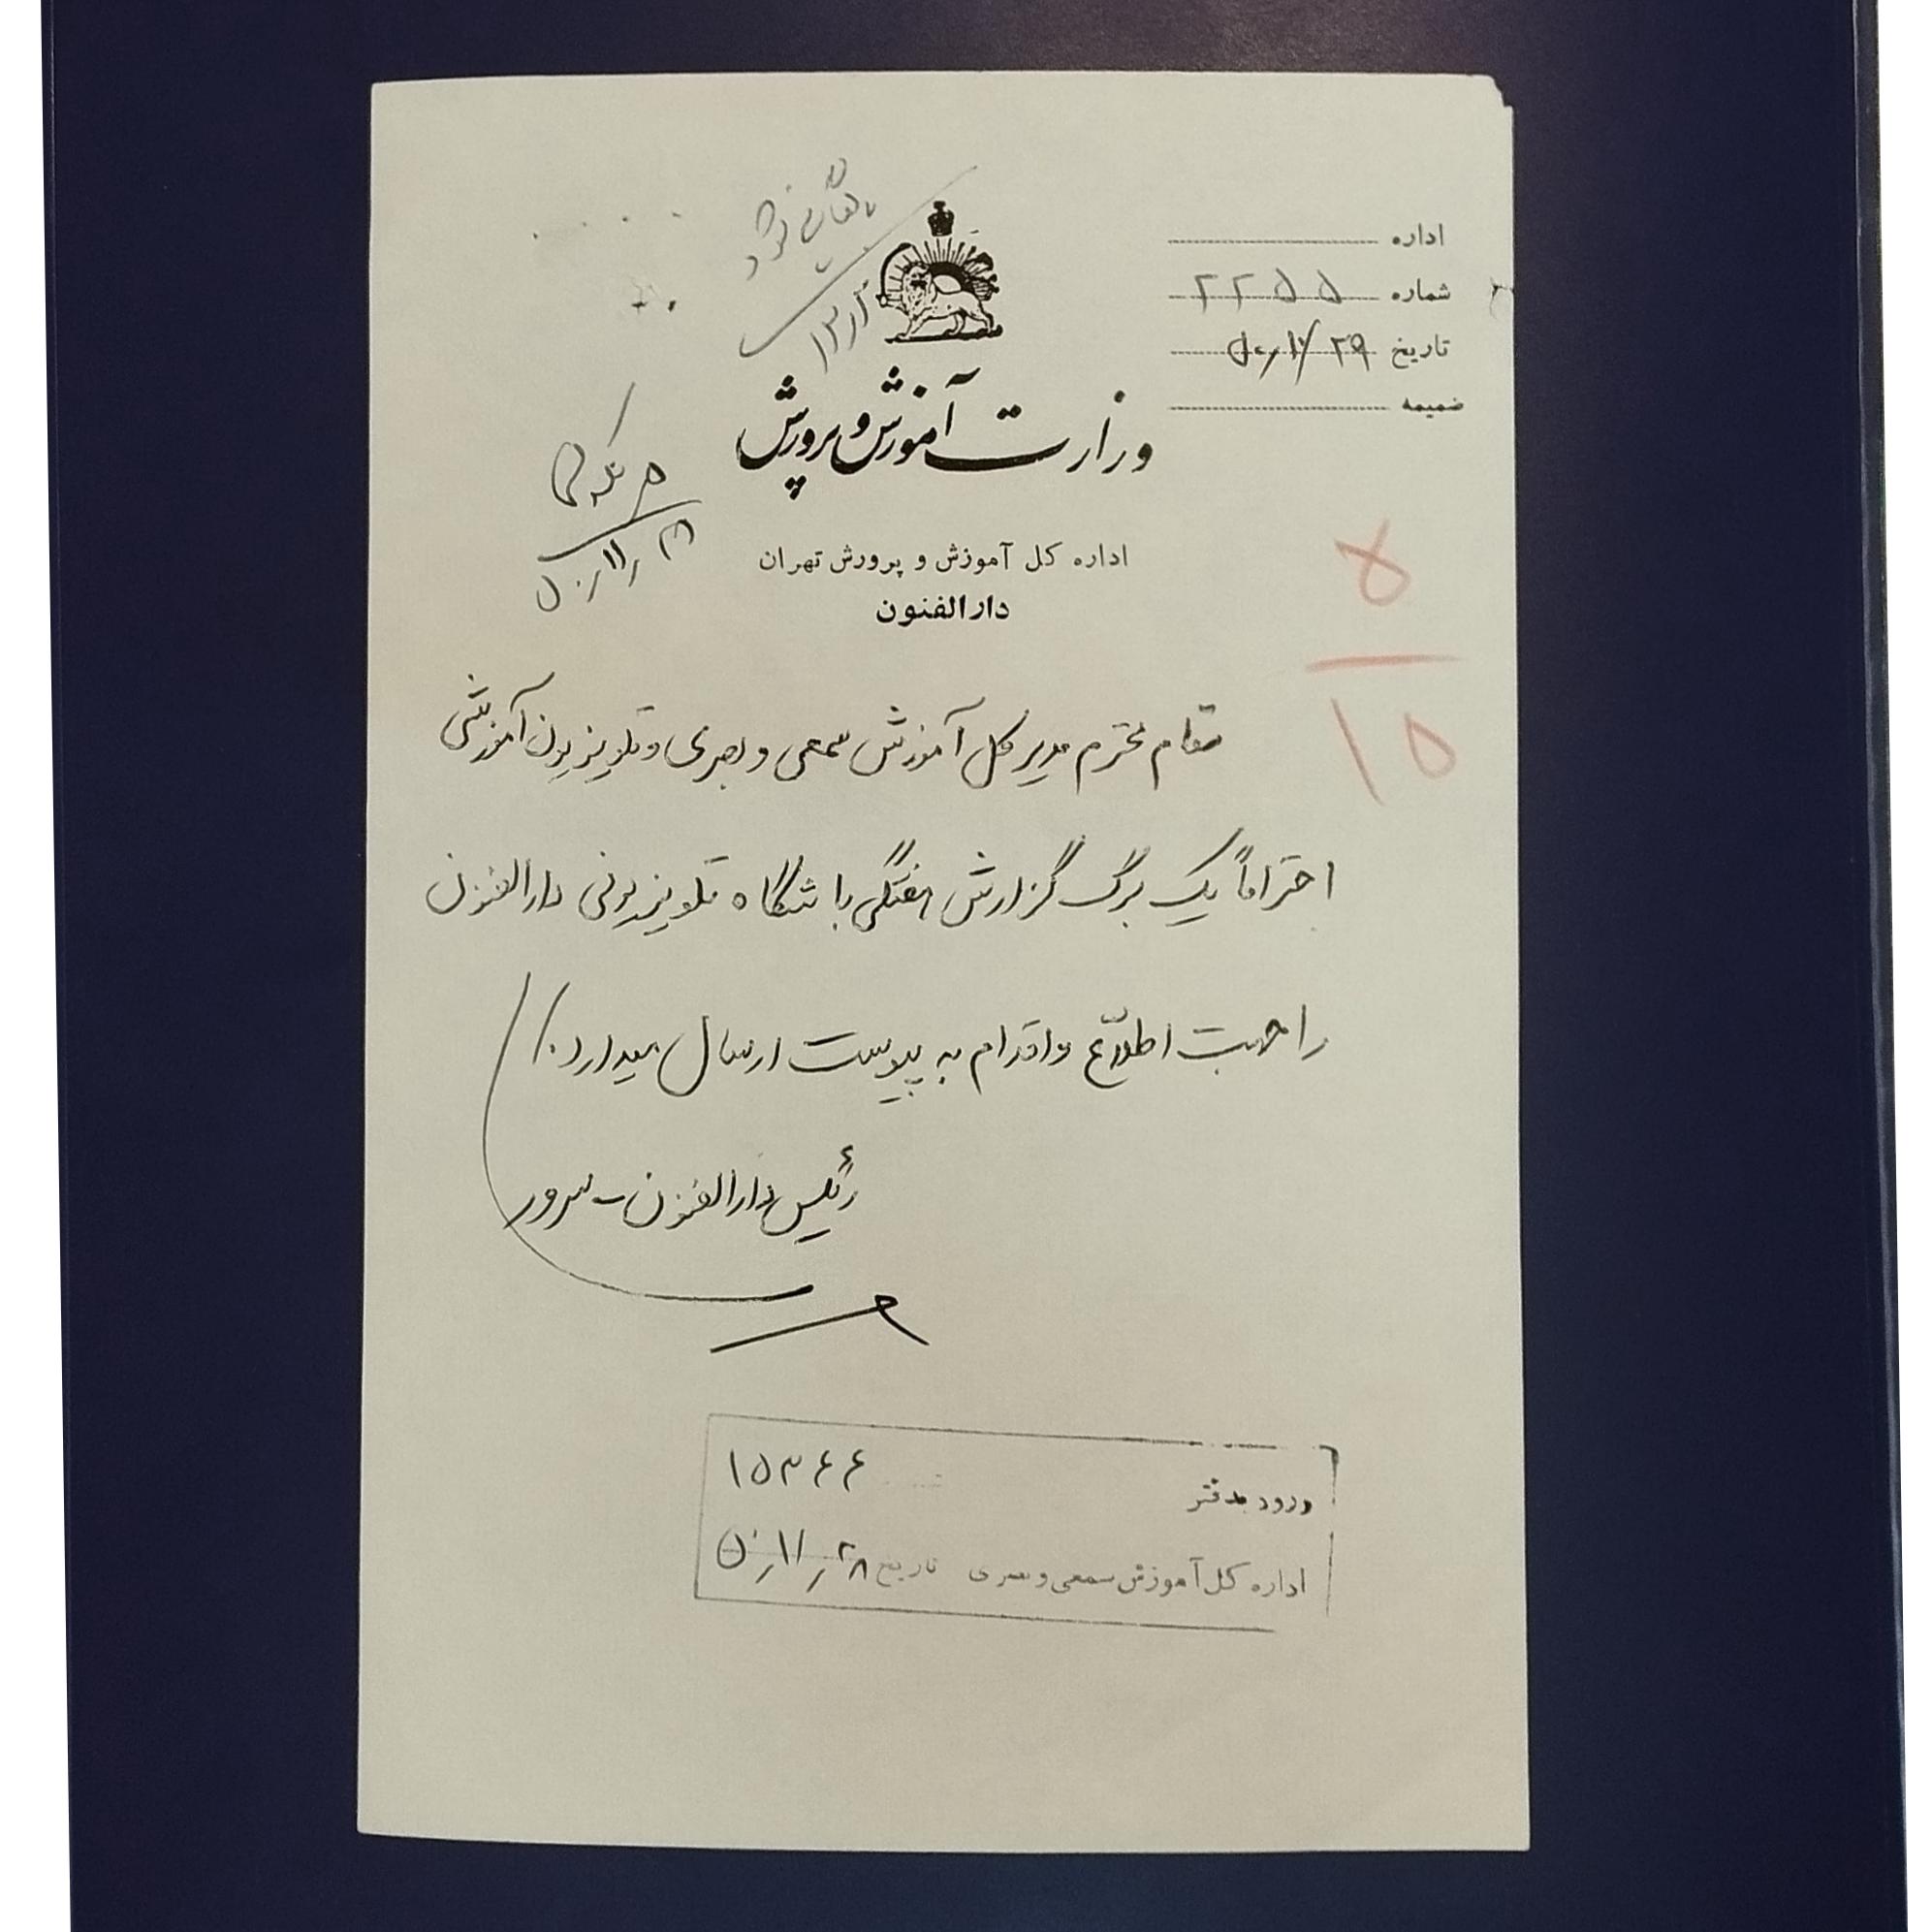 اداره
شماره ۲۲۵۵
تاریخ ۵۰/۱۰/۲۹
ضمیمه
وزارت آموزش و پرورش
اداره کل آموزش و پرورش تهران
دارالفنون
۵
۱۵
مقام محترم مدیر کل آموزش سمعی و بصری و تلویزیون آموزشی
احتراماً یک برگ گزارش هفتگی باشگاه تلویزیونی دارالفنون
را جهت اطلاع و اقدام به پیوست ارسال میدارد./
رئیس دارالفنون - سرور
ورود بدفتر ۱۵۳۶۶
اداره کل آموزش سمعی و بصری تاریخ ۵۰/۱۱/۲۸